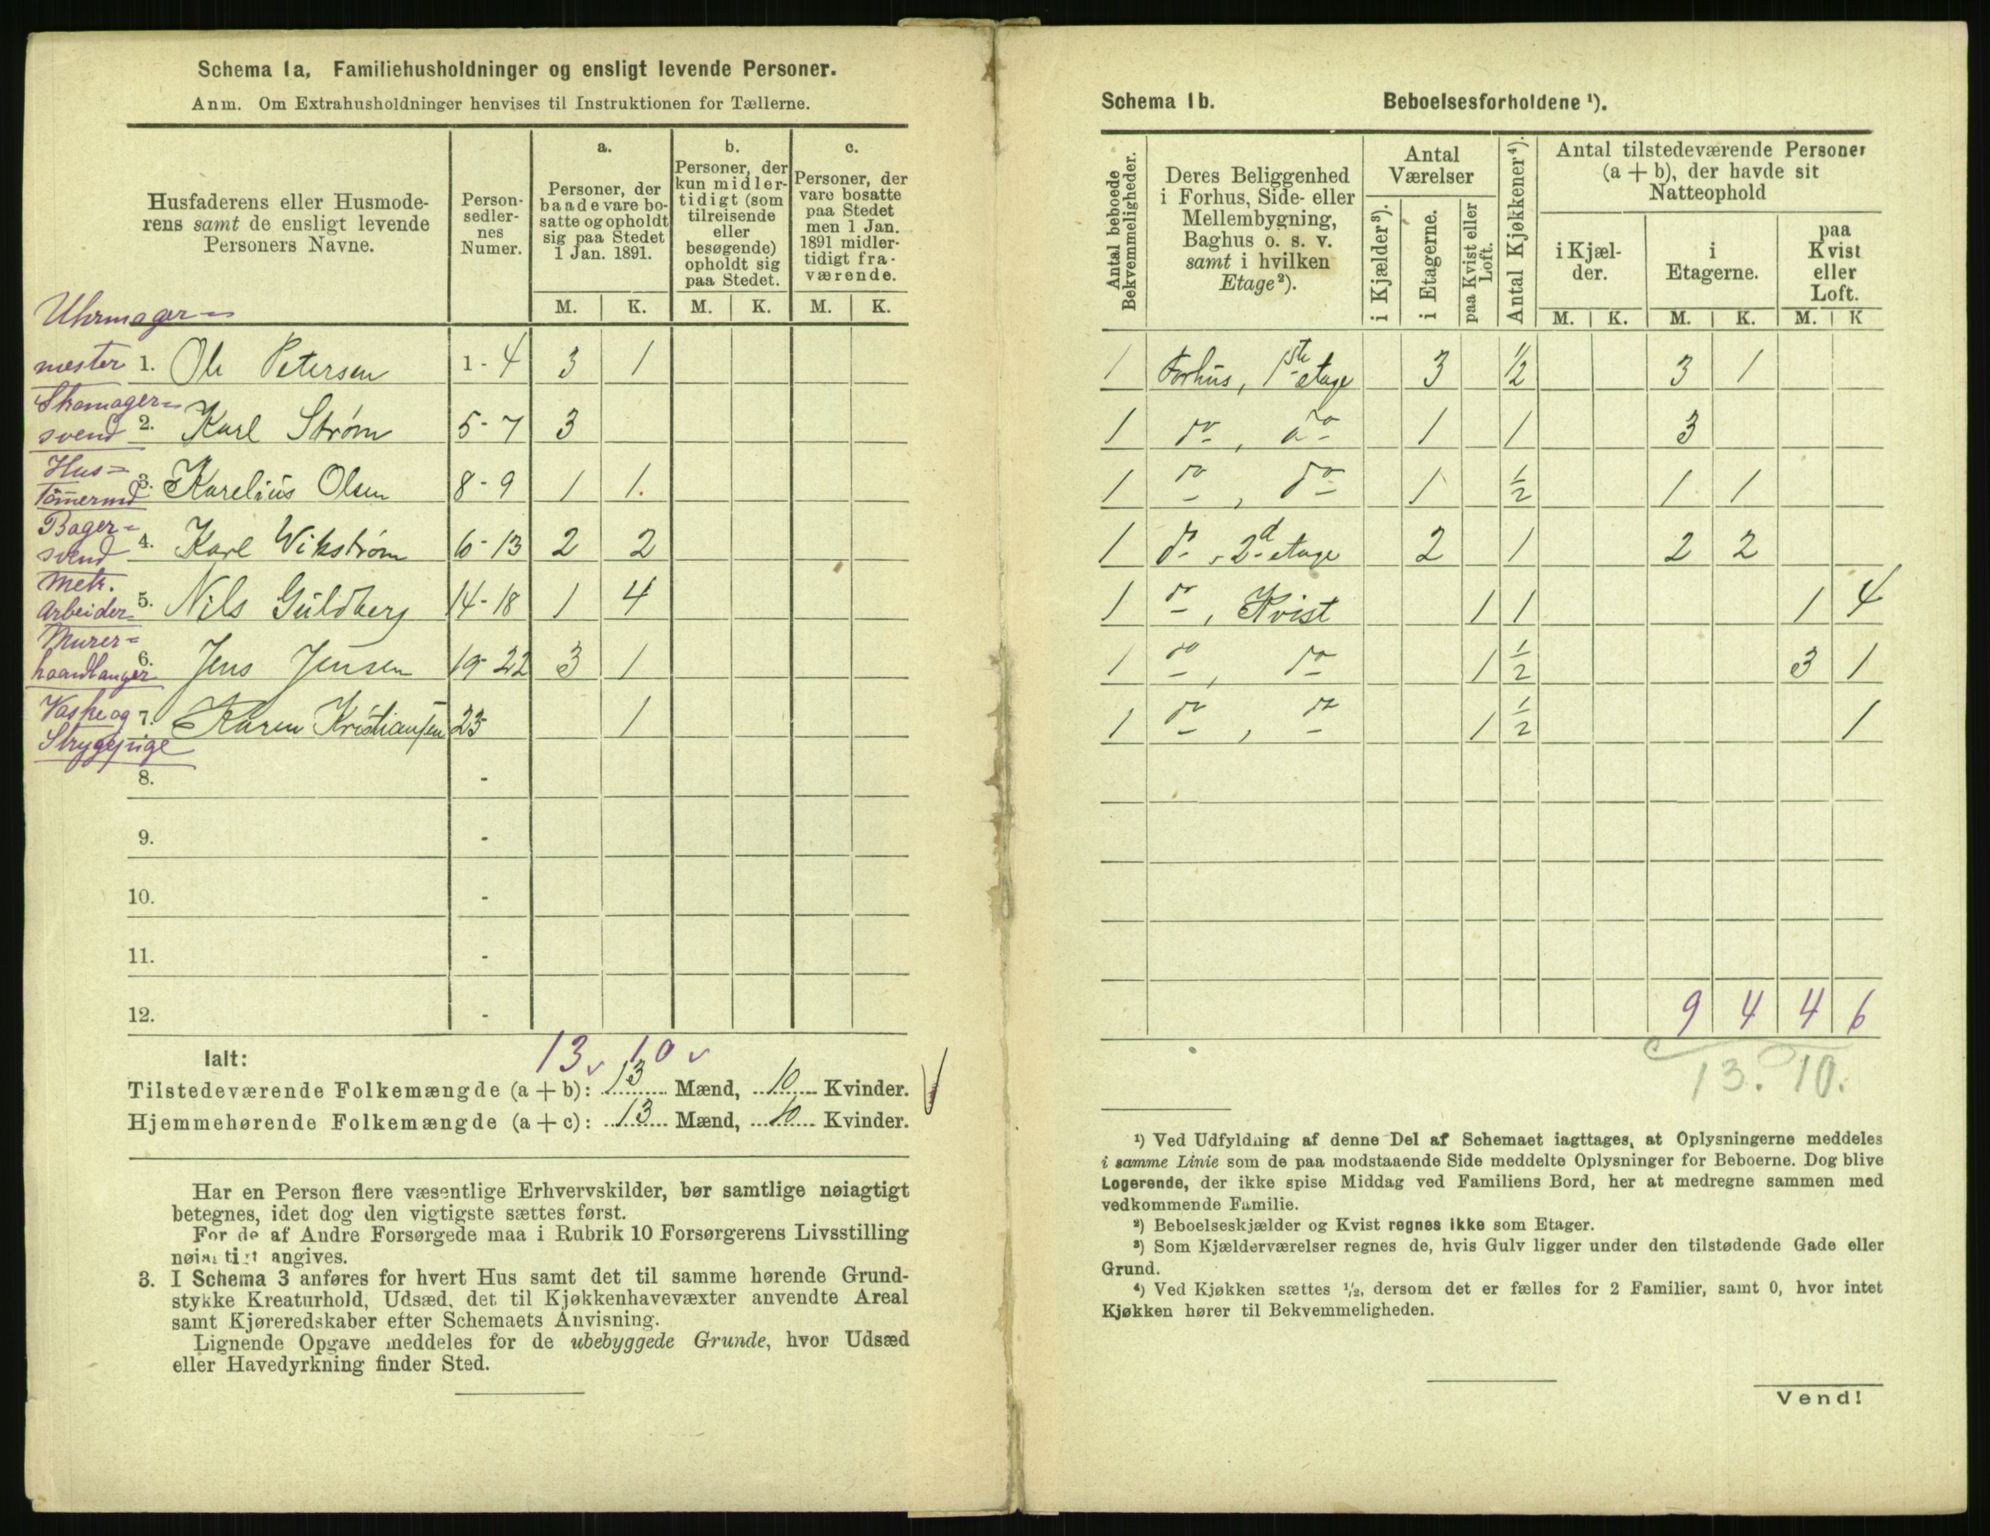 Schema 1a, Familiehusholdninger og ensligt levende Personer.
Anm. Om Extrahusholdninger henvises til Instruktionen for Tællerne.
Husfaderens eller Husmode-
rens samt de ensligt levende
Personers Navne.
Person-
sedler-
nes
Numer.
a.
Personer, der
baade vare bo-
satte og opholdt
sig paa Stedet
1 Jan. 1891.
b.
Personer, der
kun midler-
tidigt (som
tilreisende
eller
besøgende)
opholdt sig
paa Stedet.
c.
Personer, der
vare bosatte
paa Stedet
men 1 Jan.
1891 midler-
tidigt fra-
værende.
M. K. M. K. M. K.
Uhrmager=
mester 1. Ole Petersen 1-4 3 1
Skomager=
svend 2. Karl Strøm 5-7 3
Hus=
Tømermd 3. Karelius Olsen 8-9 1 1.
Bager=
svend 4. Karl Wikstrøm 10-13 2 2
Mek.
Arbeider 5. Nils Guldberg 14-18 1 4
Murer=
haandlanger 6. Jens Jensen 19-22 3 1
Vaske og 7. Karen Kristiansen 23- 1
Strygepige
8. -
9. -
10. -
11. -
12. -
13 v 10 v
Ialt:
Tilstedeværende Folkemængde (a + b): 13 Mænd, 10 Kvinder.
Hjemmehørende Folkemængde (a + c): 13 Mænd, 10 Kvinder.
Har en Person flere væsentlige Erhvervskilder, bør samtlige nøiagtigt
betegnes, idet dog den vigtigste sættes først.
For de af Andre Forsørgede maa i Rubrik 10 Forsørgerens Livsstilling
nøiagtigt angives.
3. I Schema 3 anføres for hvert Hus samt det til samme hørende Grund-
stykke Kreaturhold, Udsæd, det til Kjøkkenhavevæxter anvendte Areal
samt Kjøreredskaber efter Schemaets Anvisning.
Lignende Opgave meddeles for de ubebyggede Grunde, hvor Udsæd
eller Havedyrkning finder Sted.
Schema 1b. Beboelsesforholdene ¹).
Antal beboede
Bekvemmeligheder.
Deres Beliggenhed
i Forhus, Side- eller
Mellembygning,
Baghus o. s. v.
samt i hvilken
Etage²).
Antal
Værelser
i Kjælder³).
i Etagerne.
paa Kvist eller
Loft.
Antal Kjøkkener⁴).
Antal tilstedeværende Personer
(a + b), der havde sit
Natteophold
i Kjæl-
der.
i
Etagerne.
paa
Kvist
eller
Loft.
M. K. M. K. M. K
1 Forhus, 1ste etage 3 1/2 3 1
1 do, do 1 1 3
1 do, do 1 1/2 1 1
1 do, 2d etage 2 1 2 2
1 do, Kvist 1 1 1 4
1 do, do 1 1/2 3 1
1 do, do 1 1/2 1
9 4 4 6
13. 10.
¹) Ved Udfyldning af denne Del af Schemaet iagttages, at Oplysningerne meddeles
i samme Linie som de paa modstaaende Side meddelte Oplysninger for Beboerne. Dog blive
Logerende, der ikke spise Middag ved Familiens Bord, her at medregne sammen med
vedkommende Familie.
²) Beboelseskjælder og Kvist regnes ikke som Etager.
³) Som Kjælderværelser regnes de, hvis Gulv ligger under den tilstødende Gade eller
Grund.
⁴) Ved Kjøkken sættes ½, dersom det er fælles for 2 Familier, samt 0, hvor intet
Kjøkken hører til Bekvemmeligheden.
Vend!